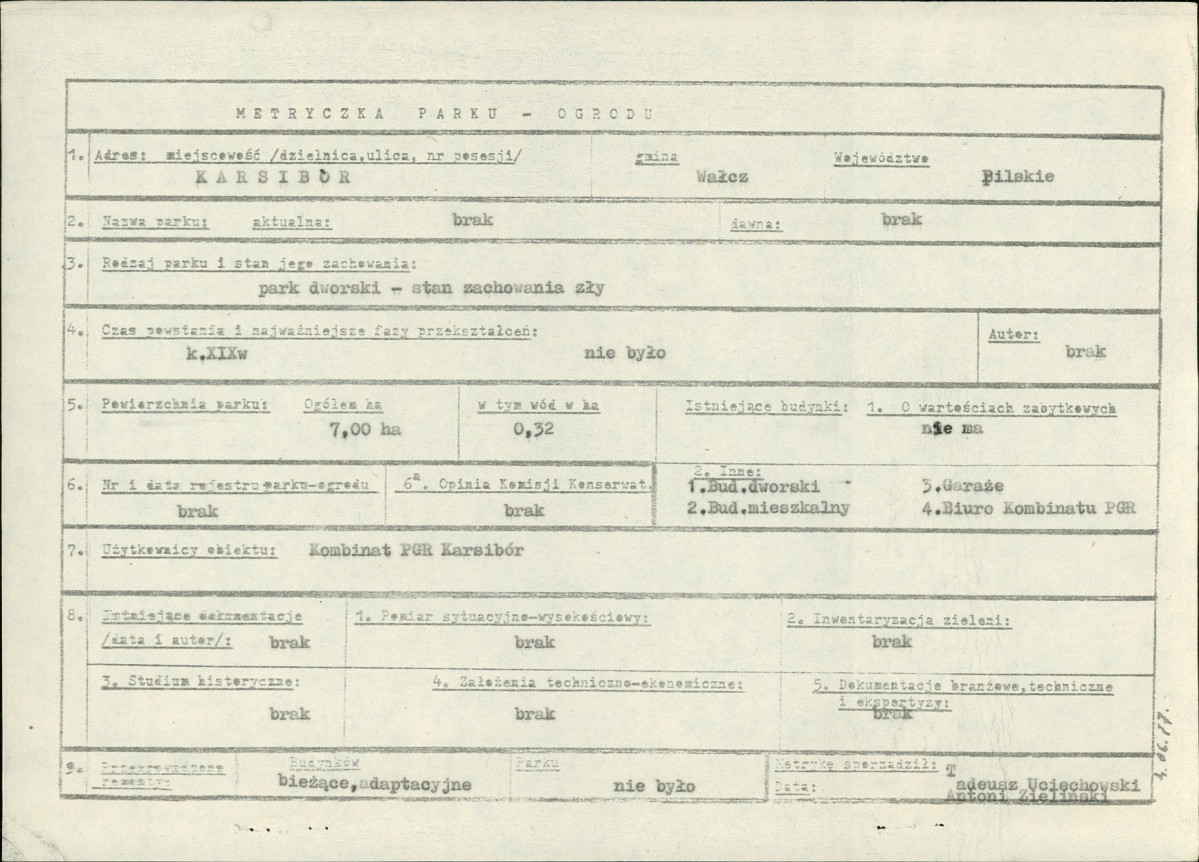 METRYCZKA PARKU - OGRODU
1. Adres: miejscowość /dzielnica,ulica, nr posesji/ gmina Województwo
KARSIBÓR Wałcz Pilskie
2. Nazwa parku: aktualna: brak dawna: brak
3. Rodzaj parku i stan jego zachowania:
park dworski - stan zachowania zły
4. Czas powstania i najważniejsze fazy przekształceń: Autor:
k.XIXw nie było brak
5. Powierzchnia parku: Ogółem ha w tym wód w ha Istniejące budynki: 1. O wartościach zabytkowych
7,00 ha 0,32 nie ma
6. Nr i data rejestru parku-ogrodu 6a. Opinia Komisji Konserwat. 2. Inne:
brak brak 1.Bud.dworski 3.Garaże
2.Bud.mieszkalny 4.Biuro Kombinatu PGR
7. Użytkownicy obiektu: Kombinat PGR Karsibór
8. Istniejące dokumentacje 1. Pomiar sytuacyjno-wysokościowy: 2. Inwentaryzacja zieleni:
/data i autor/: brak brak brak
3. Studium historyczne: 4. Założenia techniczno-ekonomiczne: 5. Dokumentacje branżowe,techniczne
i ekspertyzy:
brak brak brak
9. Przeprowadzone remonty: Budynków Parku Metrykę sporządził:
bieżące,adaptacyjne nie było Tadeusz Uciechowski
Data: Antoni Zieliński